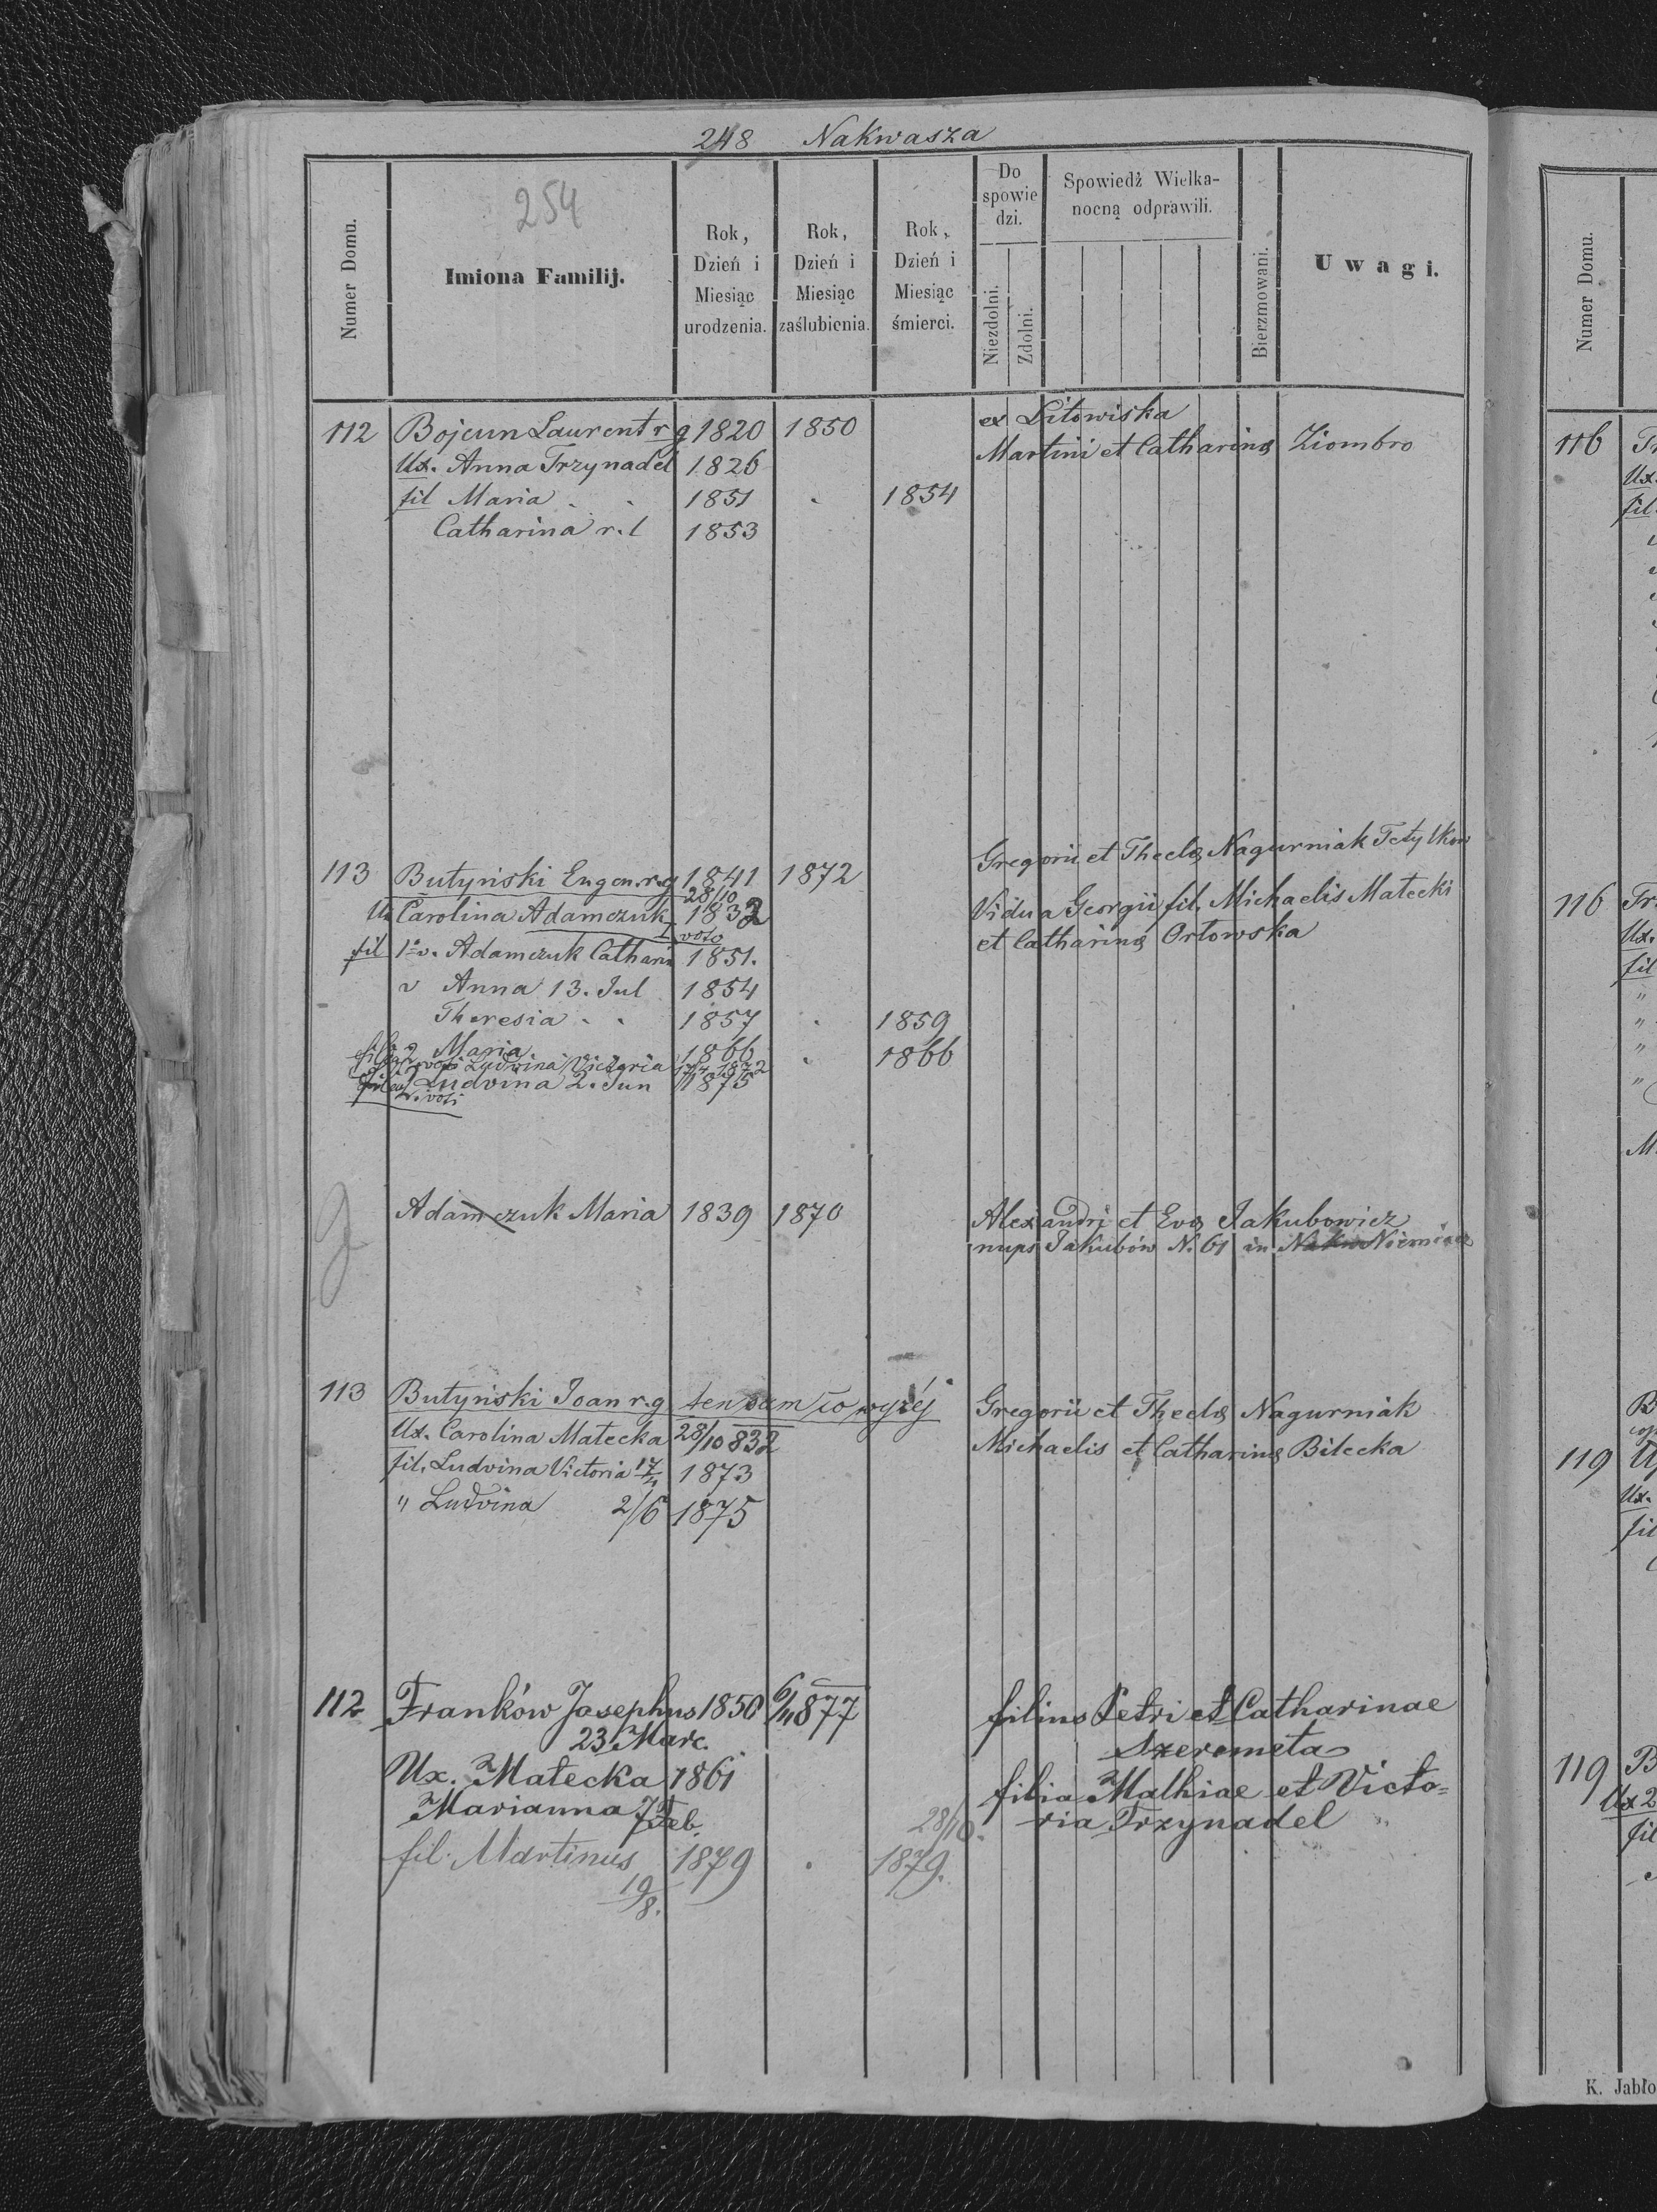 248 Nakwasza
254
Numer Domu.
Imiona Familij.
Rok, Dzień i Miesiąc urodzenia.
Rok, Dzień i Miesiąc zaślubienia.
Rok, Dzień i Miesiąc śmierci.
Do spowie dzi.
Niezdolni.
Zdolni.
Spowiedź Wielka-
nocną odprawili.
Bierzmowani.
Uwagi.
112 Bojcun Laurent r g 1820 1850 ex Litowiska
Ux. Anna Trzynadel 1826 Martini et Catharinæ Ziombro
fil Maria 1851 1854
Catharina r. l 1853
113 Butyński Eugen. r. g 1841 1872 Gregorii et Theclæ Nagurniak Tetylkow
28/10
Ux Carolina Adamczuk 1832 Vidua Georgii fil. Michaelis Małecki
I voto
et Catharinæ Orłowska
fil 1º v. Adamczuk Cathari 1851.
v Anna 13. Jul 1854
Theresia 1857 1859
Maria 1866 1866
Ludwina Victoria 17/4 1872
Ludvina 2. Jun 1875
2. voti
Adamczuk Maria 1839 1870 Alexandri et Evæ Jakubowicz
nups Jakubów N. 61 in Nakw
113 Butyński Joan r. g ten sam co wyżéj Gregorii et Theclæ Nagurniak
Ux. Carolina Małecka 28/10 832 Michaelis et Catharinæ Bilecka
fil. Ludvina Victoria 17/4 1873
" Ludvina 2/6 1875
112 Franków Josephus 1850 6/11 877 filius Petri et Catharinae
23 Marc. Szeremeta
Ux. Małecka 1861 filia Mathiae et Victo=
Marianna 7 Feb. ria Trzynadel
28/10.
fil. Martinus 1879 1879.
19/8.
Numer Domu.
116
Ux.
fil.
116
Ux.
fil
119
Ux.
fil
119
Ux 2
fil
K. Jabło